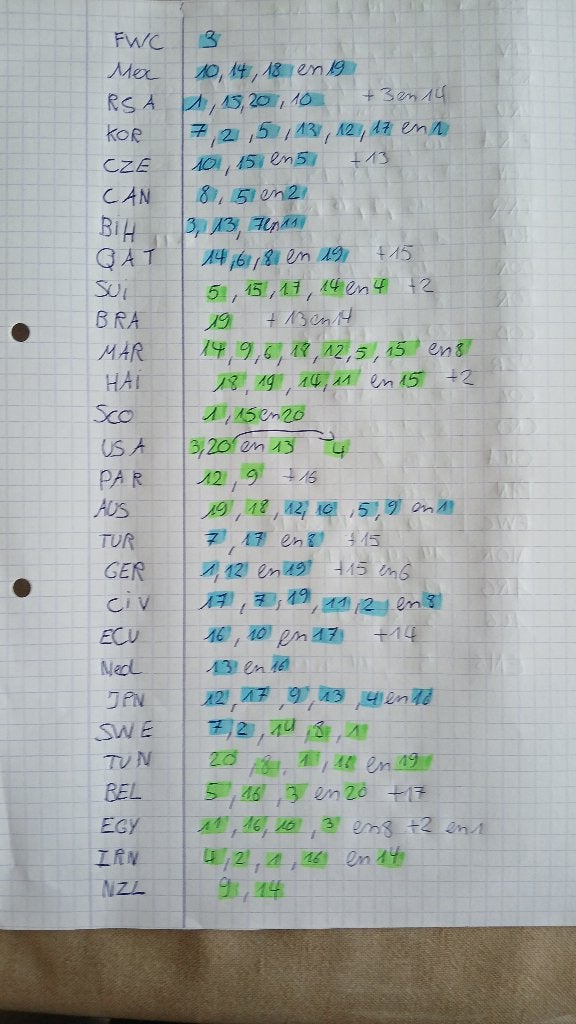 FWC 3
Mex 10, 14, 18 en 19
RSA 1, 15, 20, 10 +3 en 14
KOR 7, 2, 5, 13, 12, 17 en 1
CZE 10, 15 en 5 +13
CAN 8, 5 en 2
BiH 3, 13, 7 en 11
QAT 14, 6, 8 en 19 +15
SUi 5, 15, 17, 14 en 4 +2
BRA 19 +13 en 14
MAR 14, 9, 6, 18, 12, 5, 15 en 8
HAi 18, 19, 14, 11 en 15 +2
SCO 1, 15 en 20
USA 3, 20 en 13 4
PAR 12, 9 +16
AUS 19, 18, 12, 10, 5, 9 en 1
TUR 7, 17 en 8 +15
GER 1, 12 en 19 +15 en 6
CiV 17, 7, 19, 11, 2 en 8
ECU 16, 10 en 17 +14
Ned 13 en 16
JPN 12, 17, 9, 13, 4 en 16
SWE 7, 2, 14, 8, 1
TUN 20, 8, 1, 16 en 19
BEL 5, 16, 3 en 20 +17
EGY 11, 16, 10, 3 en 8 +2 en 1
IRN 4, 2, 1, 16 en 14
NZL 9, 14